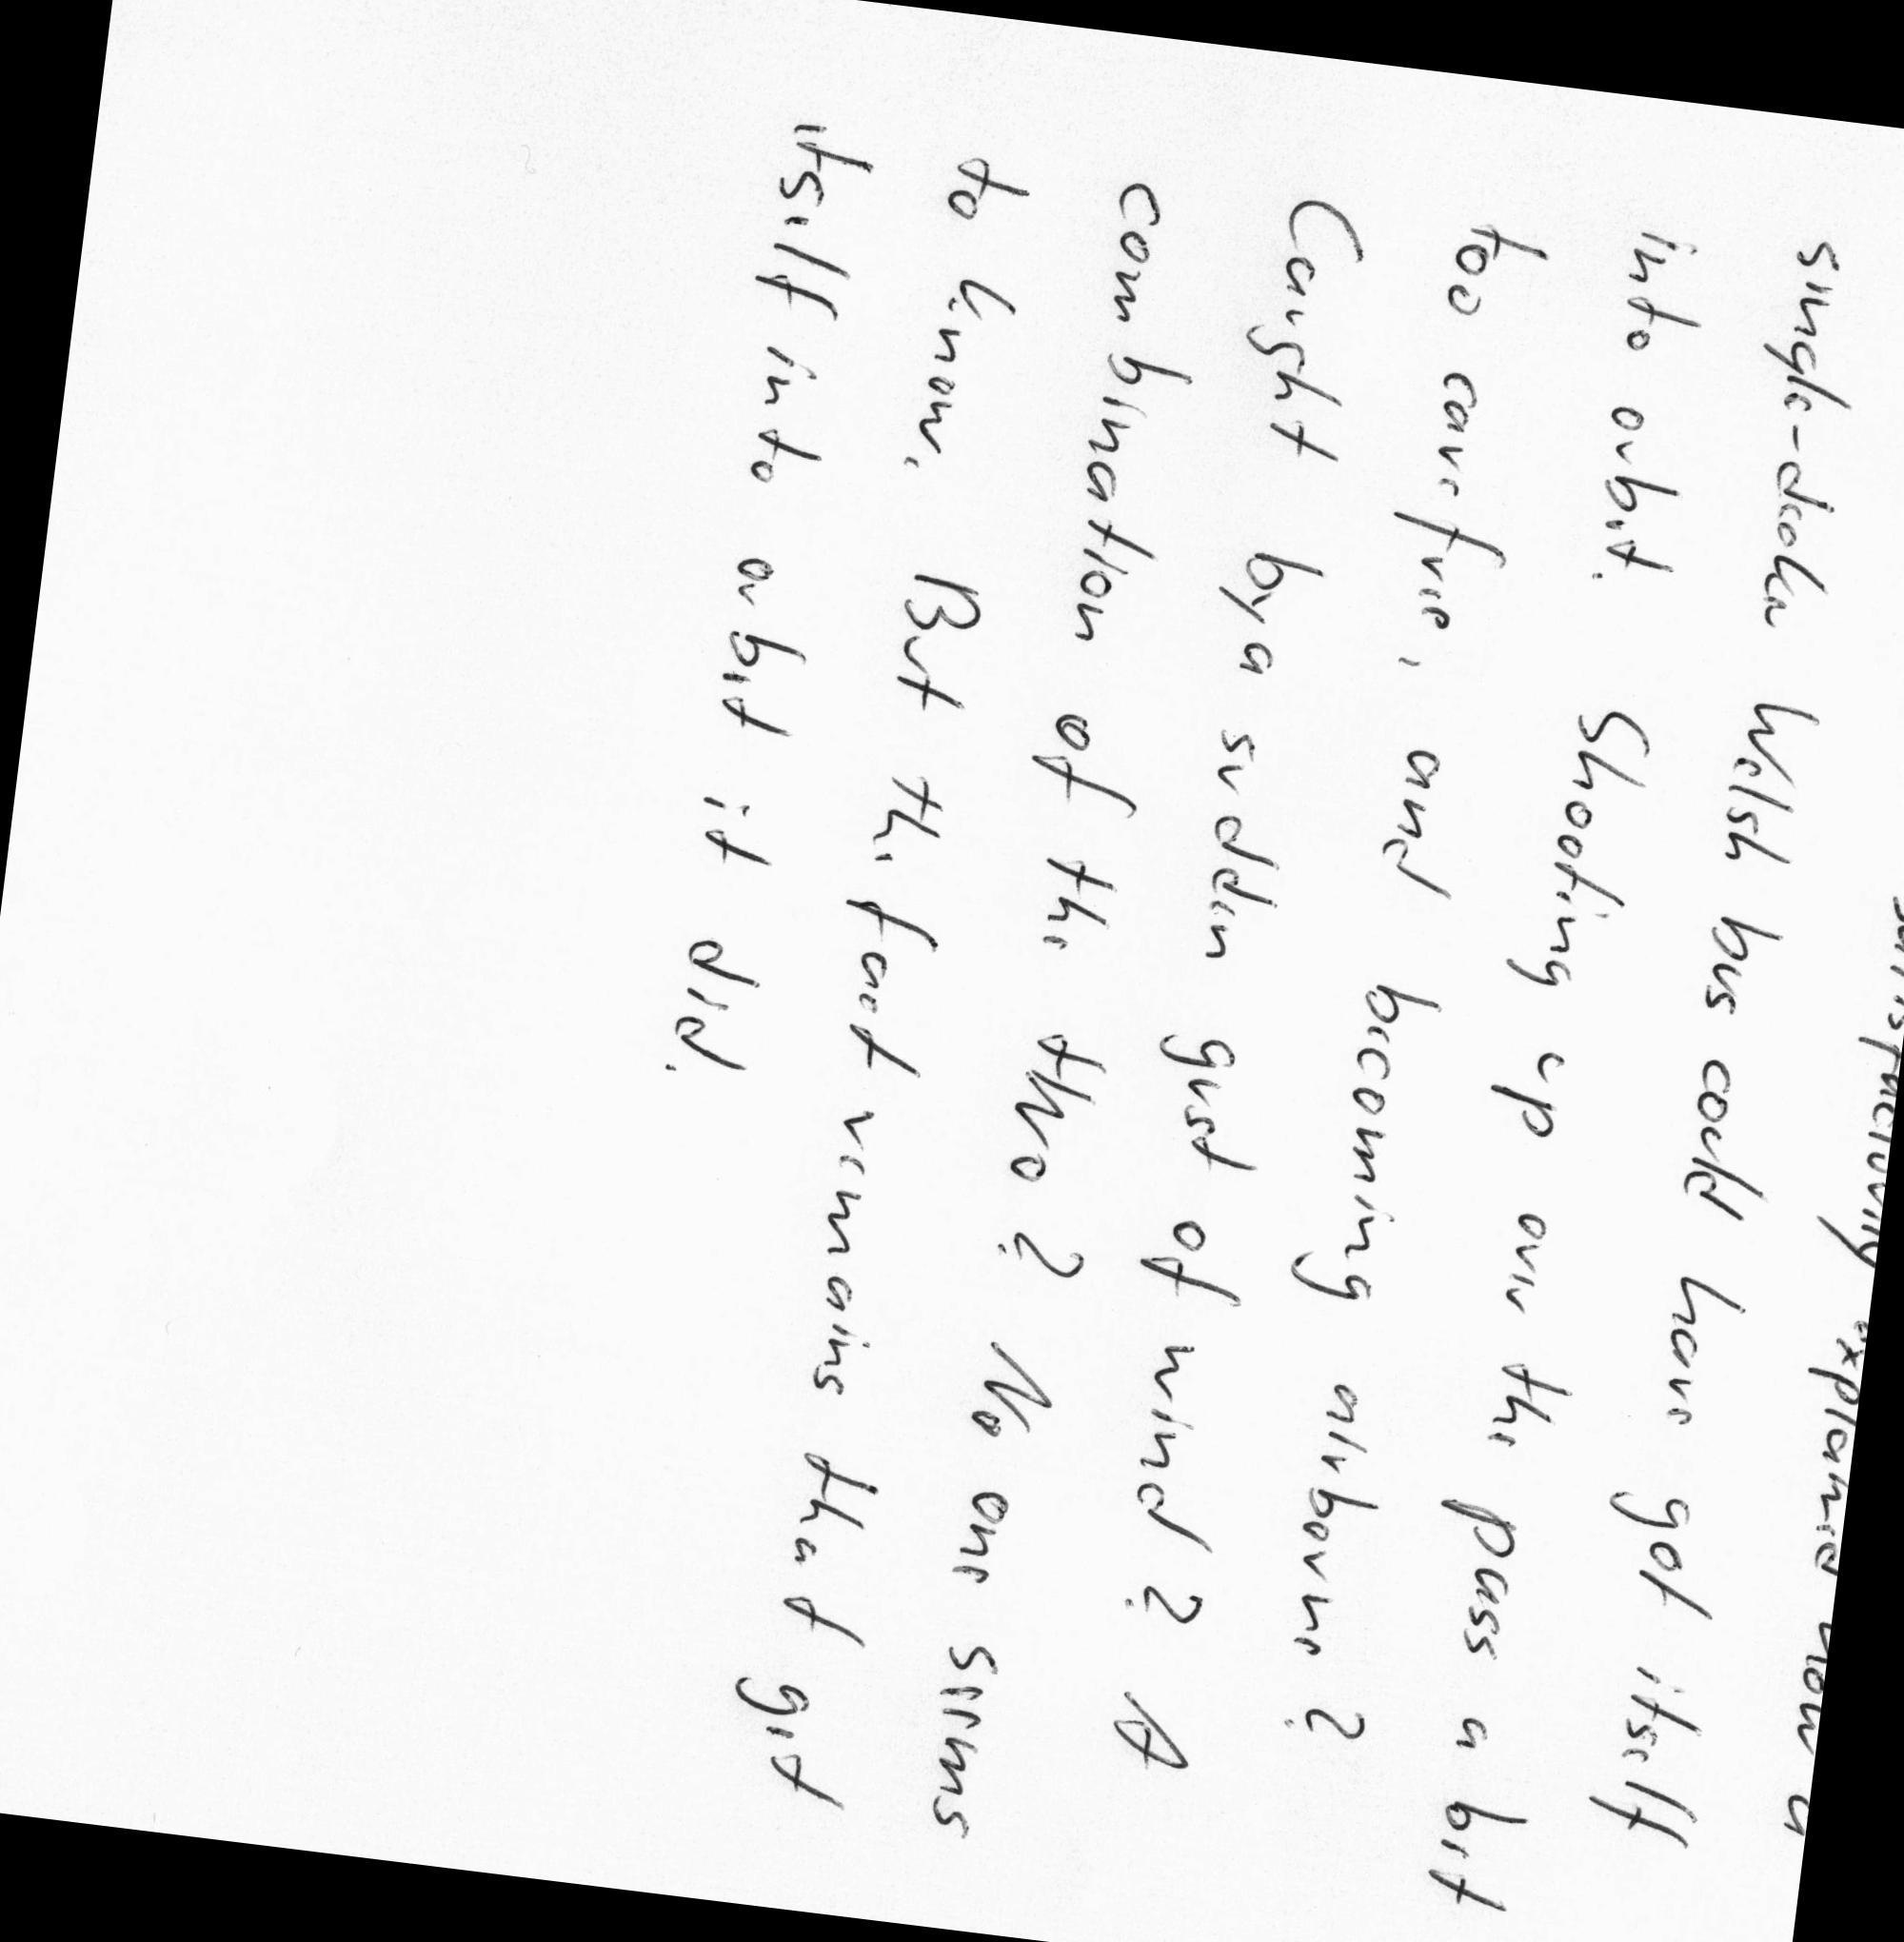 satisfactorily explained how a
single-decker Welsh bus could have got itself
into orbit. Shooting up over the pass a bit
too carefree, and becoming airborne?
Caught by a sudden gust of wind? A
combination of the two? No one seems
to know. But the fact remains that get
itself into orbit it did.